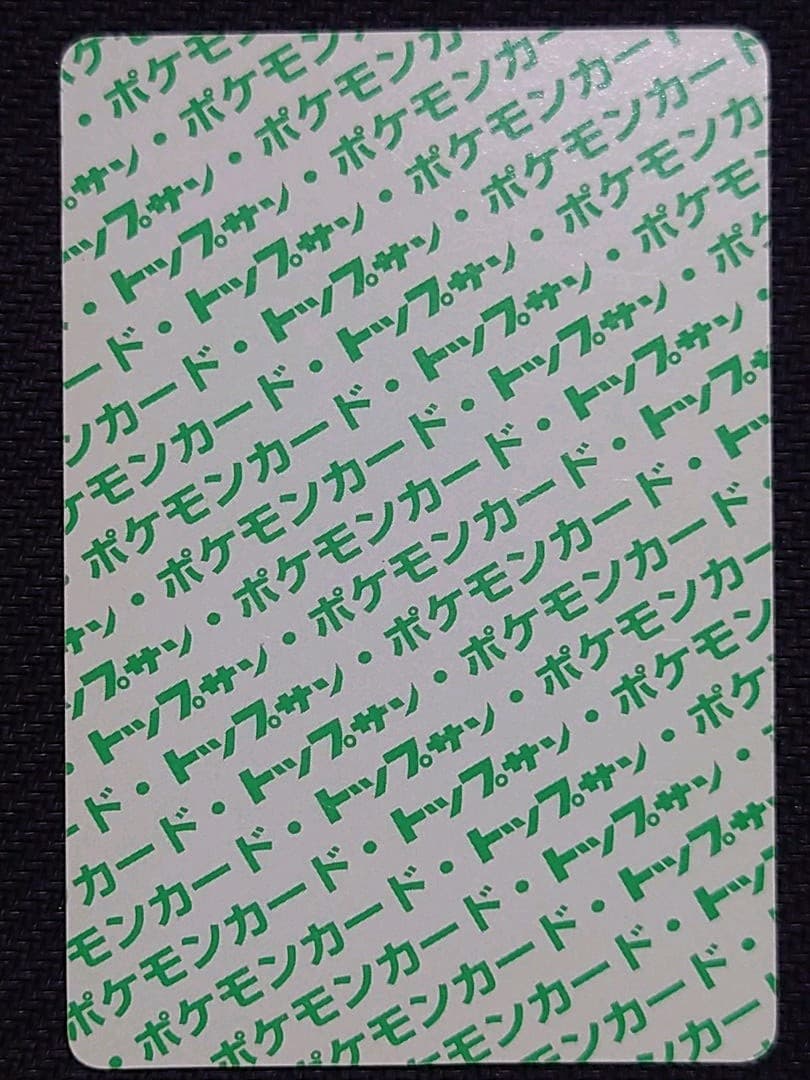 ケモ
・ポケモン
サン・ポケモン
ップサン・ポケモンカ
・トップサン・ポケモンカー
ード・トップサン・ポケモンカード
ンカード・トップサン・ポケモンカード
ケモンカード・トップサン・ポケモンカ
・ポケモンカード・トップサン・ポケモン
サン・ポケモンカード・トップサン・ポケ
ップサン・ポケモンカード・トップサン・
・トップサン・ポケモンカード・トップ
ード・トップサン・ポケモンカード・トッ
カード・トップサン・ポケモンカード・
モンカード・トップサン・ポケモンカー
ポケモンカード・トップサン・ポケモン
・ポケモンカード・トップサン・ポケ
ポケモンカード・トップサン・
ケモンカード・トップサ
モンカード・トッ
ンカード・
カー